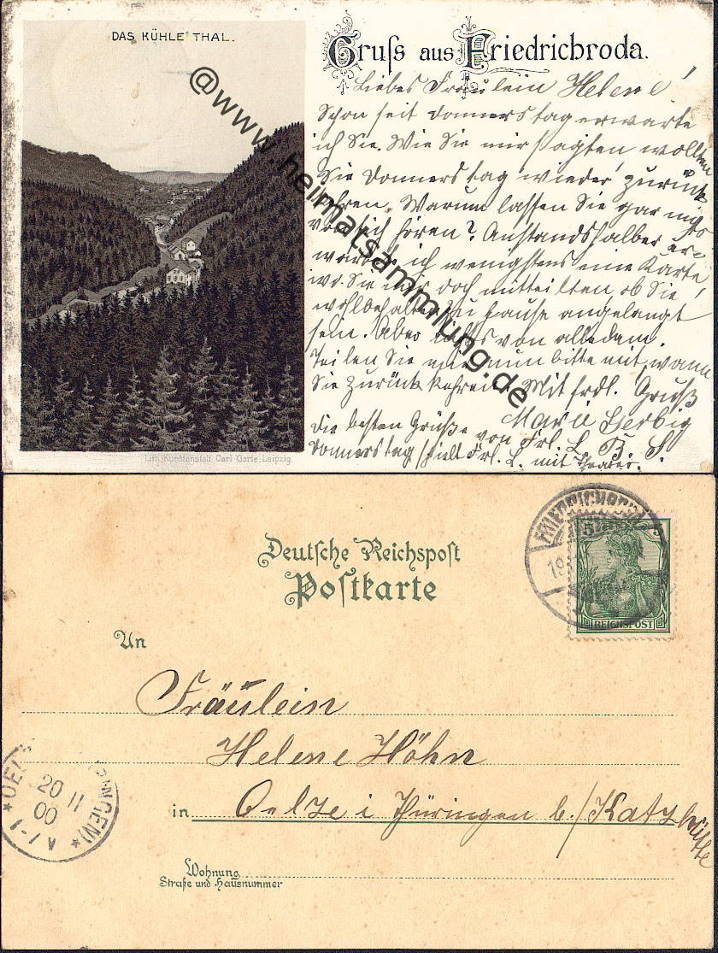 DAS KÜHLE THAL.
Gruss aus Friedrichroda.
Liebes Fräulein Helene!
Schon seit Donnerstag erwarte
ich Sie. Wie Sie mir sagten wollten
Sie Donnerstag wieder zurück
kehren. Warum lassen Sie gar nichts
von sich hören? Anstandshalber er
wartet ich wenigstens eine Karte,
wo Sie mir doch mitteilten ob Sie
wohlbehalten zu Hause angelangt
sein. Aber nichts von alledem.
Teilen Sie mir nun bitte mit, wann
Sie zurück kehren. Mit frdl. Gruß
Marie
Die besten Grüße von Frl. L. B. S.
Donnerstag spielt Frl. L. mit Theater.
Lith. Kunstanstalt Carl Garte, Leipzig
@www.heimatsammlung.de
Deutsche Reichspost
Postkarte
An
Fräulein
Helene Höhn
in Oelze i Thüringen b./Katzhütte
Wohnung
Straße und Hausnummer
REICHSPOST
5
20 11
00